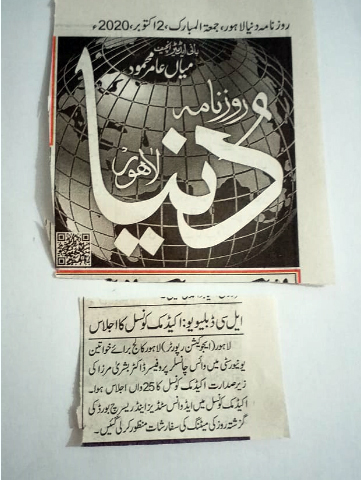 روزنامہ دنیا لاہور، جمعۃ المبارک، 2 اکتوبر، 2020ء
بانی ایڈیٹر انچیف
میاں عامر محمود
روزنامہ
دُنیا
لاہور
ایل سی ڈبلیو یو: اکیڈمک کونسل کا اجلاس
لاہور (ایجوکیشن رپورٹر) لاہور کالج برائے خواتین
یونیورسٹی میں وائس چانسلر پروفیسر ڈاکٹر بشریٰ مرزا کی
زیر صدارت اکیڈمک کونسل کا 25واں اجلاس ہوا۔
اکیڈمک کونسل میں ایڈوانس سٹڈیز اینڈ ریسرچ بورڈ کی
گزشتہ روز کی میٹنگ کی سفارشات منظور کر لی گئیں۔